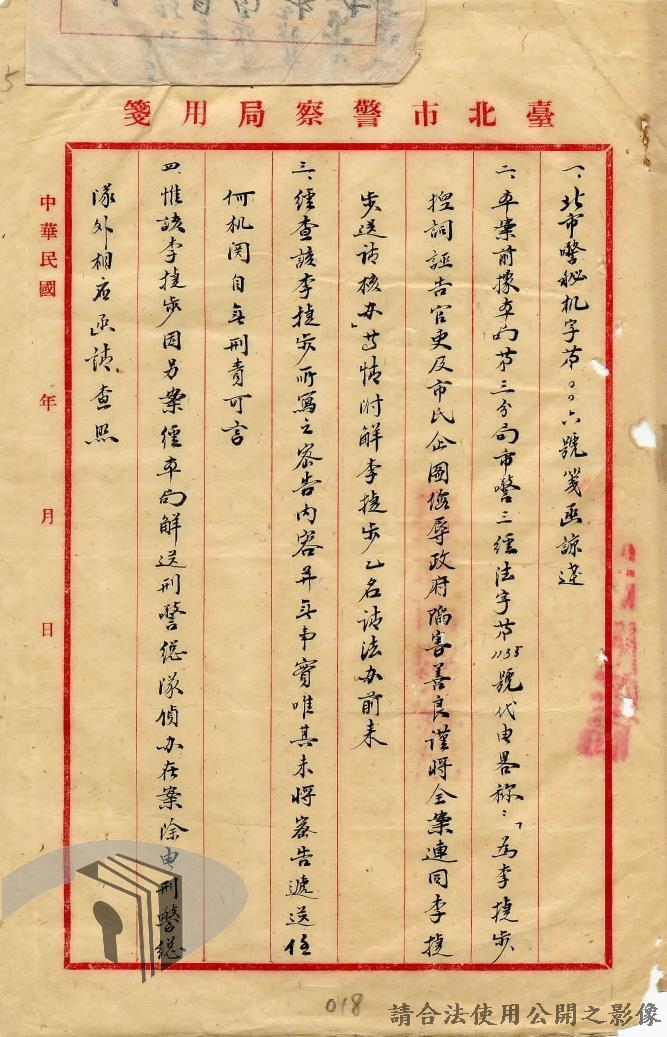 臺北市警察局用箋
一、北市警秘机字苐００六號箋函諒達
二、本案前據本局苐三分局市警三經法字苐1135號代电畧称：「為李捷步
揑詞誣告官吏及市民企圖侮辱政府陷害善良謹將全案連同李捷
步送請核办」等情附解李捷步乙名請法办前来
三、經查該李捷步所寫之密告内容并無事實唯其未將密告遞送任
何机関自無刑責可言
四、惟該李捷步因另案經本局解送刑警總隊偵办在案除电刑警總
隊外相应函請查照
中華民國　年　月　日
018
請合法使用公開之影像